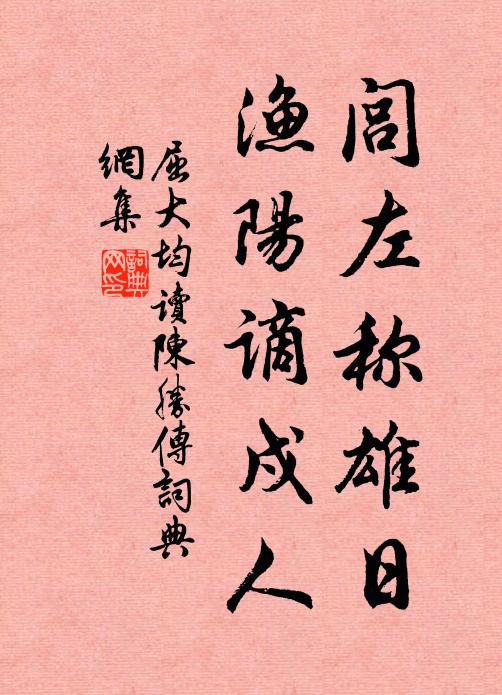 闾左称雄日
漁陽谪戍人
屈大均读陳勝傳詞典
網集
詞典
网印